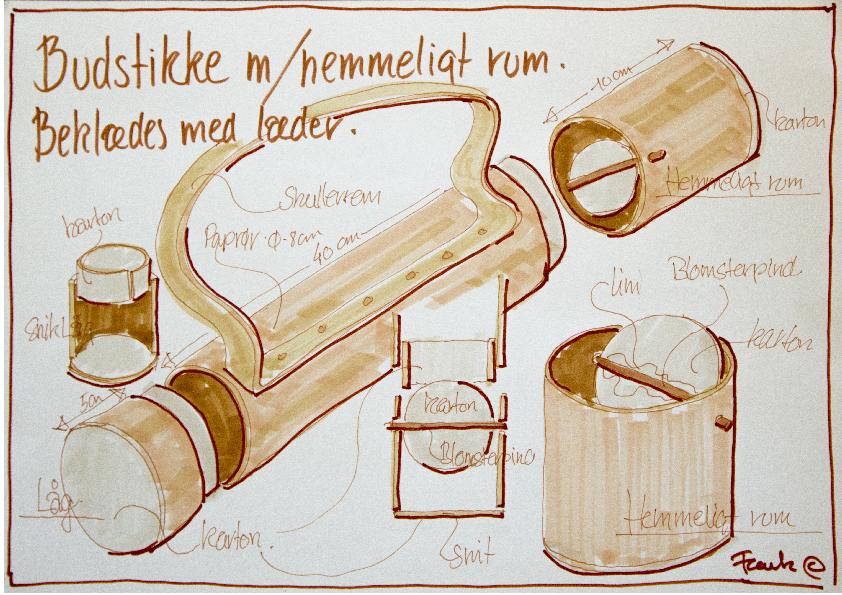 Budstikke m/hemmeligt rum.
Beklædes med læder.
10 cm
karton
Hemmeligt rum
Skulderrem
karton
Paprør Ø-8cm
40 cm
lim
Blomsterpind
karton
5cm
karton
Blomsterpind
Låg
karton.
snit
Hemmeligt rum
Frank ©